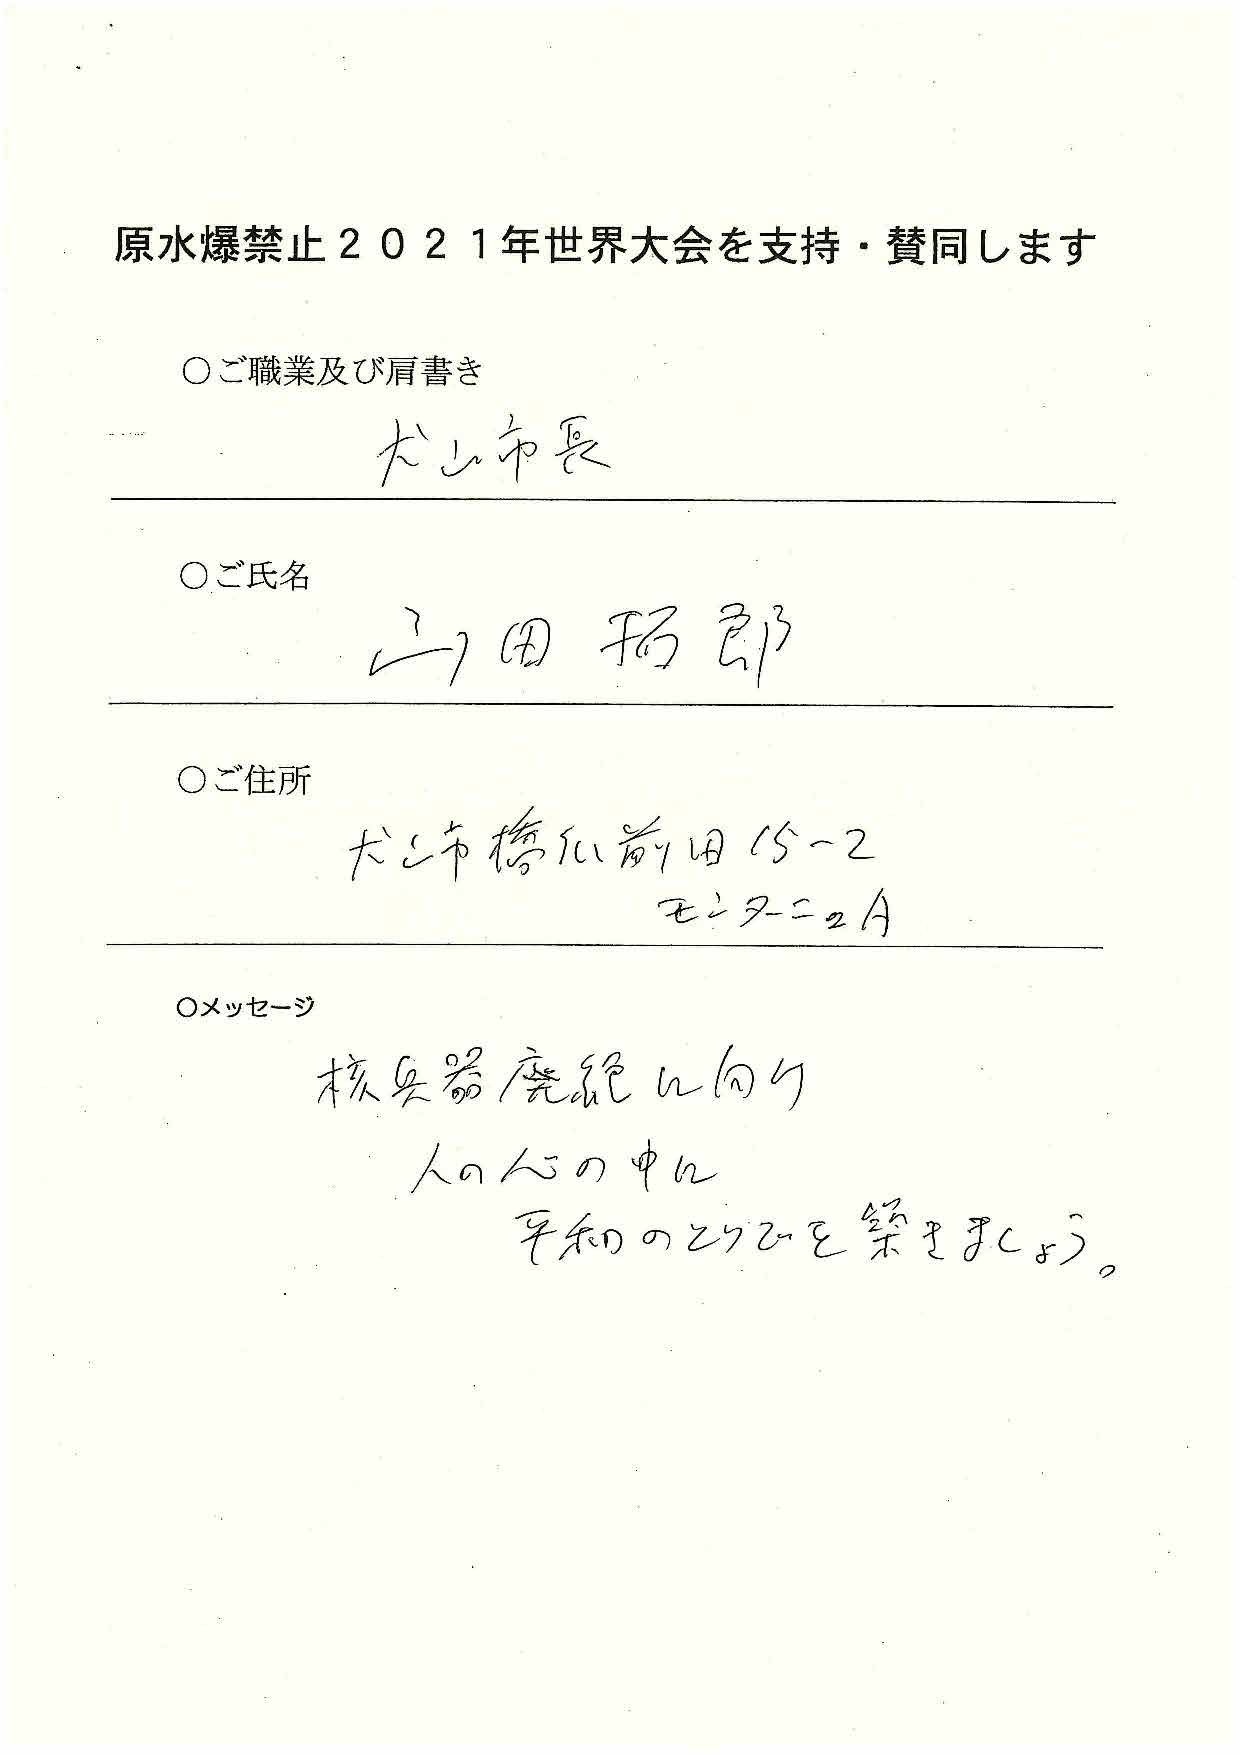 原水爆禁止2021年世界大会を支持・賛同します
〇ご職業及び肩書き
犬山市長
〇ご氏名
山田 拓郎
〇ご住所
犬山市橋爪前田15-2
モンターニュA
〇メッセージ
核兵器廃絶に向け
人の心の中に
平和のとりでを築きましょう。